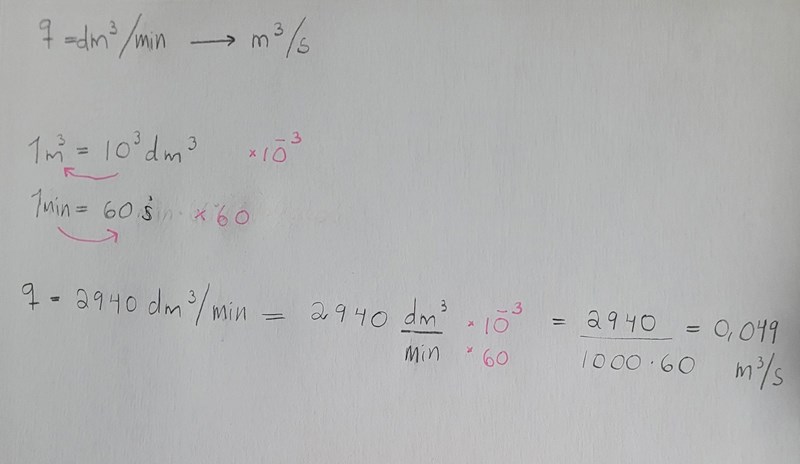 q = dm³/min → m³/s
1m³ = 10³ dm³ × 10⁻³
1min = 60 s × 60
q = 2940 dm³/min = 2940 dm³/min × 10⁻³ × 60 = 2940/1000·60 = 0,049 m³/s